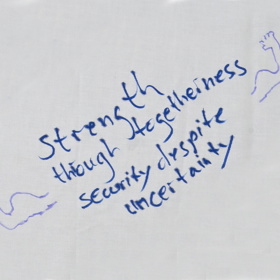 Strength
through togetheiness
security despite
uncertainty